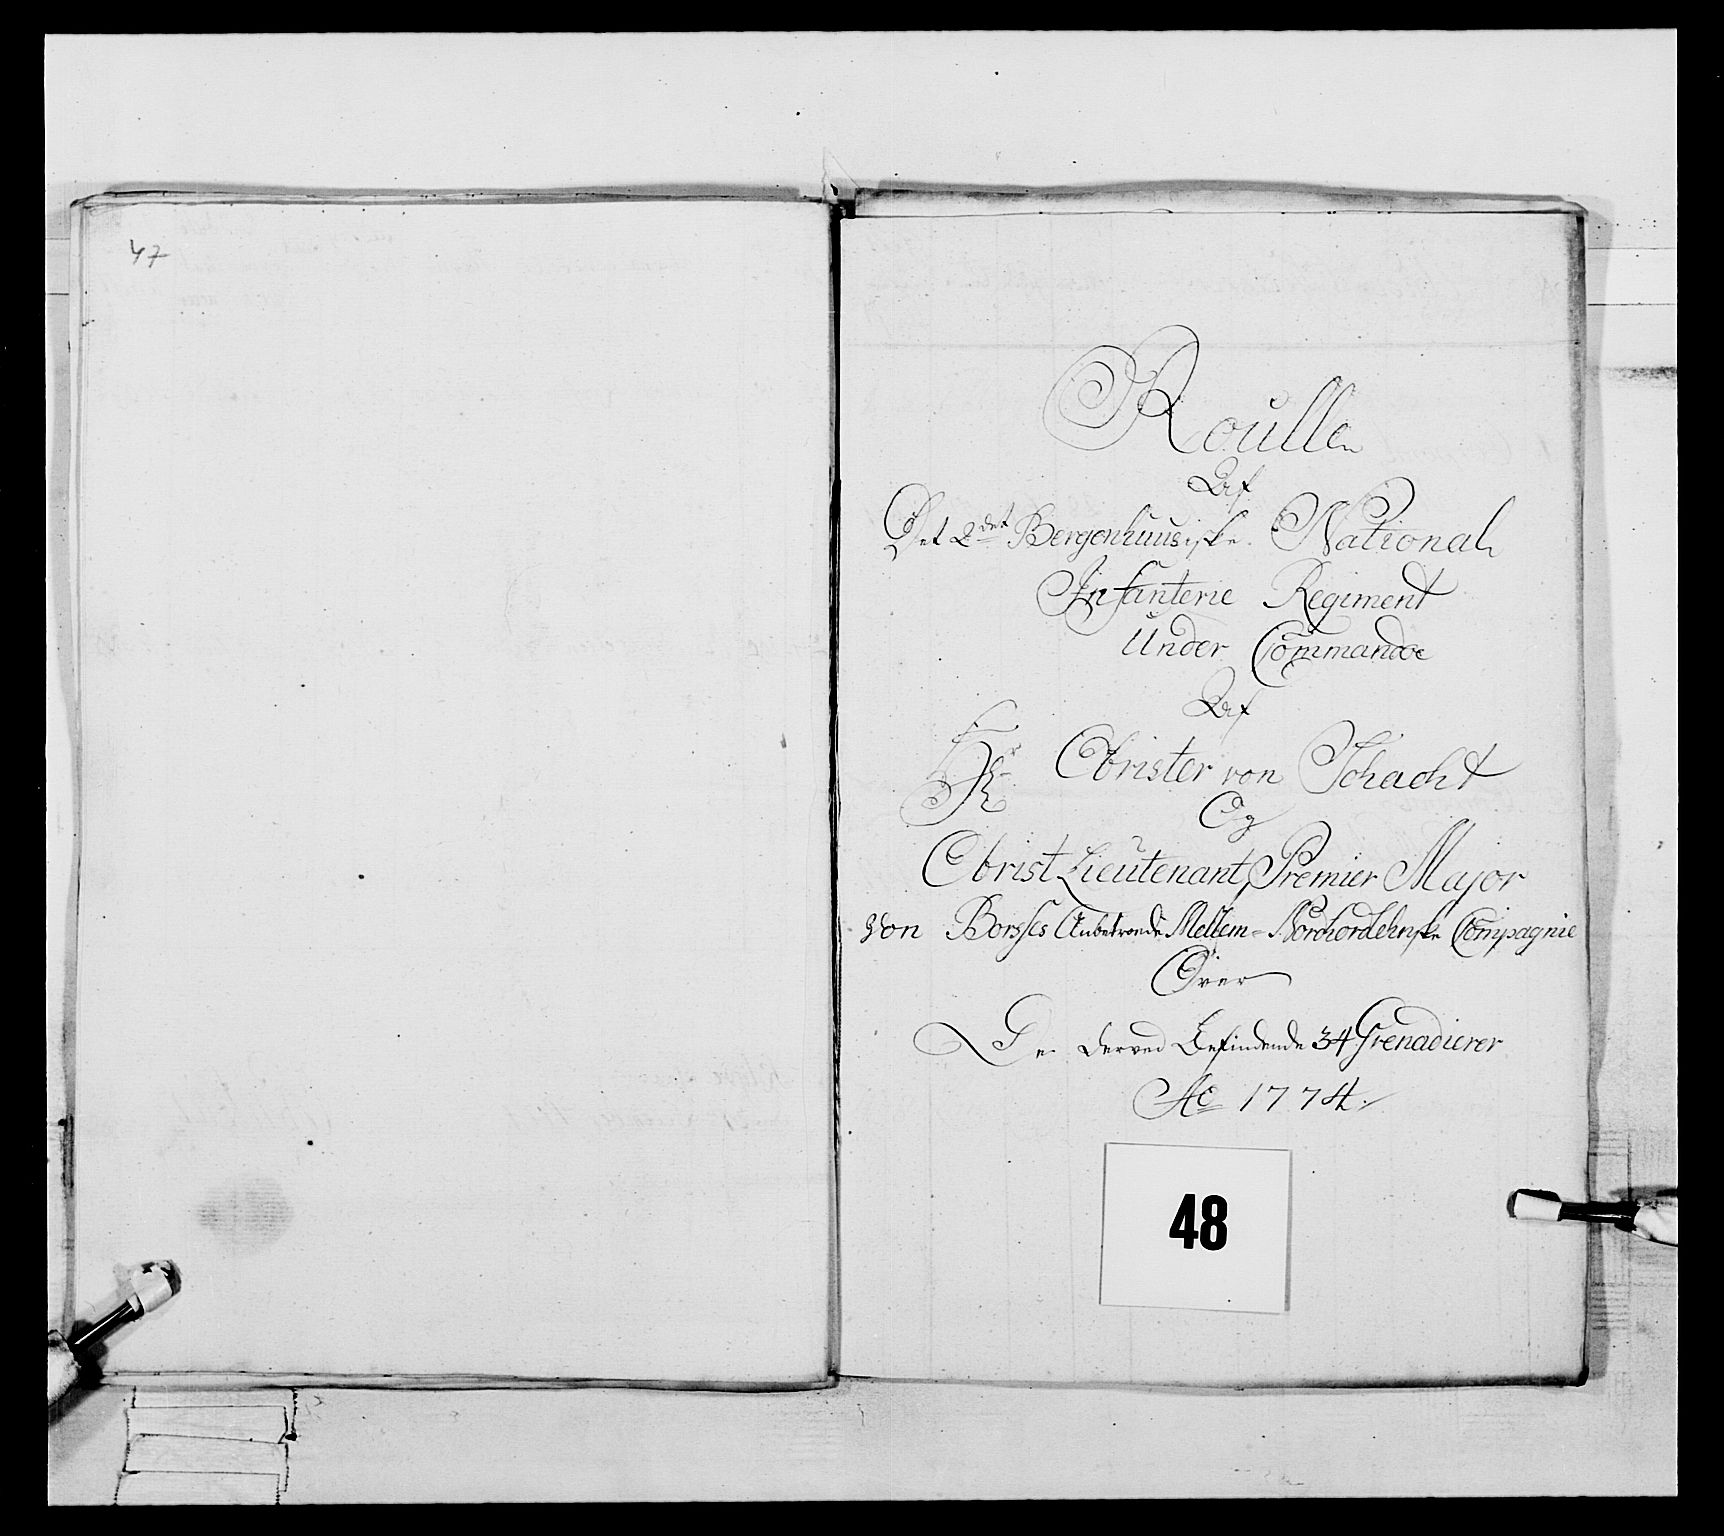 47
Roulle
Af
Det 2det Bergenhuusiske National
Infanterie Regiment
Under Commando
Af
Hr Obrister von Schacht
Og
Obrist Lieutenant, Premier Major
von Borsses Anbetroede Mellem-Nordhordlehnske Compagnie
Over
De derved Befindende 34 Grenadierer
Ao 1774.
48